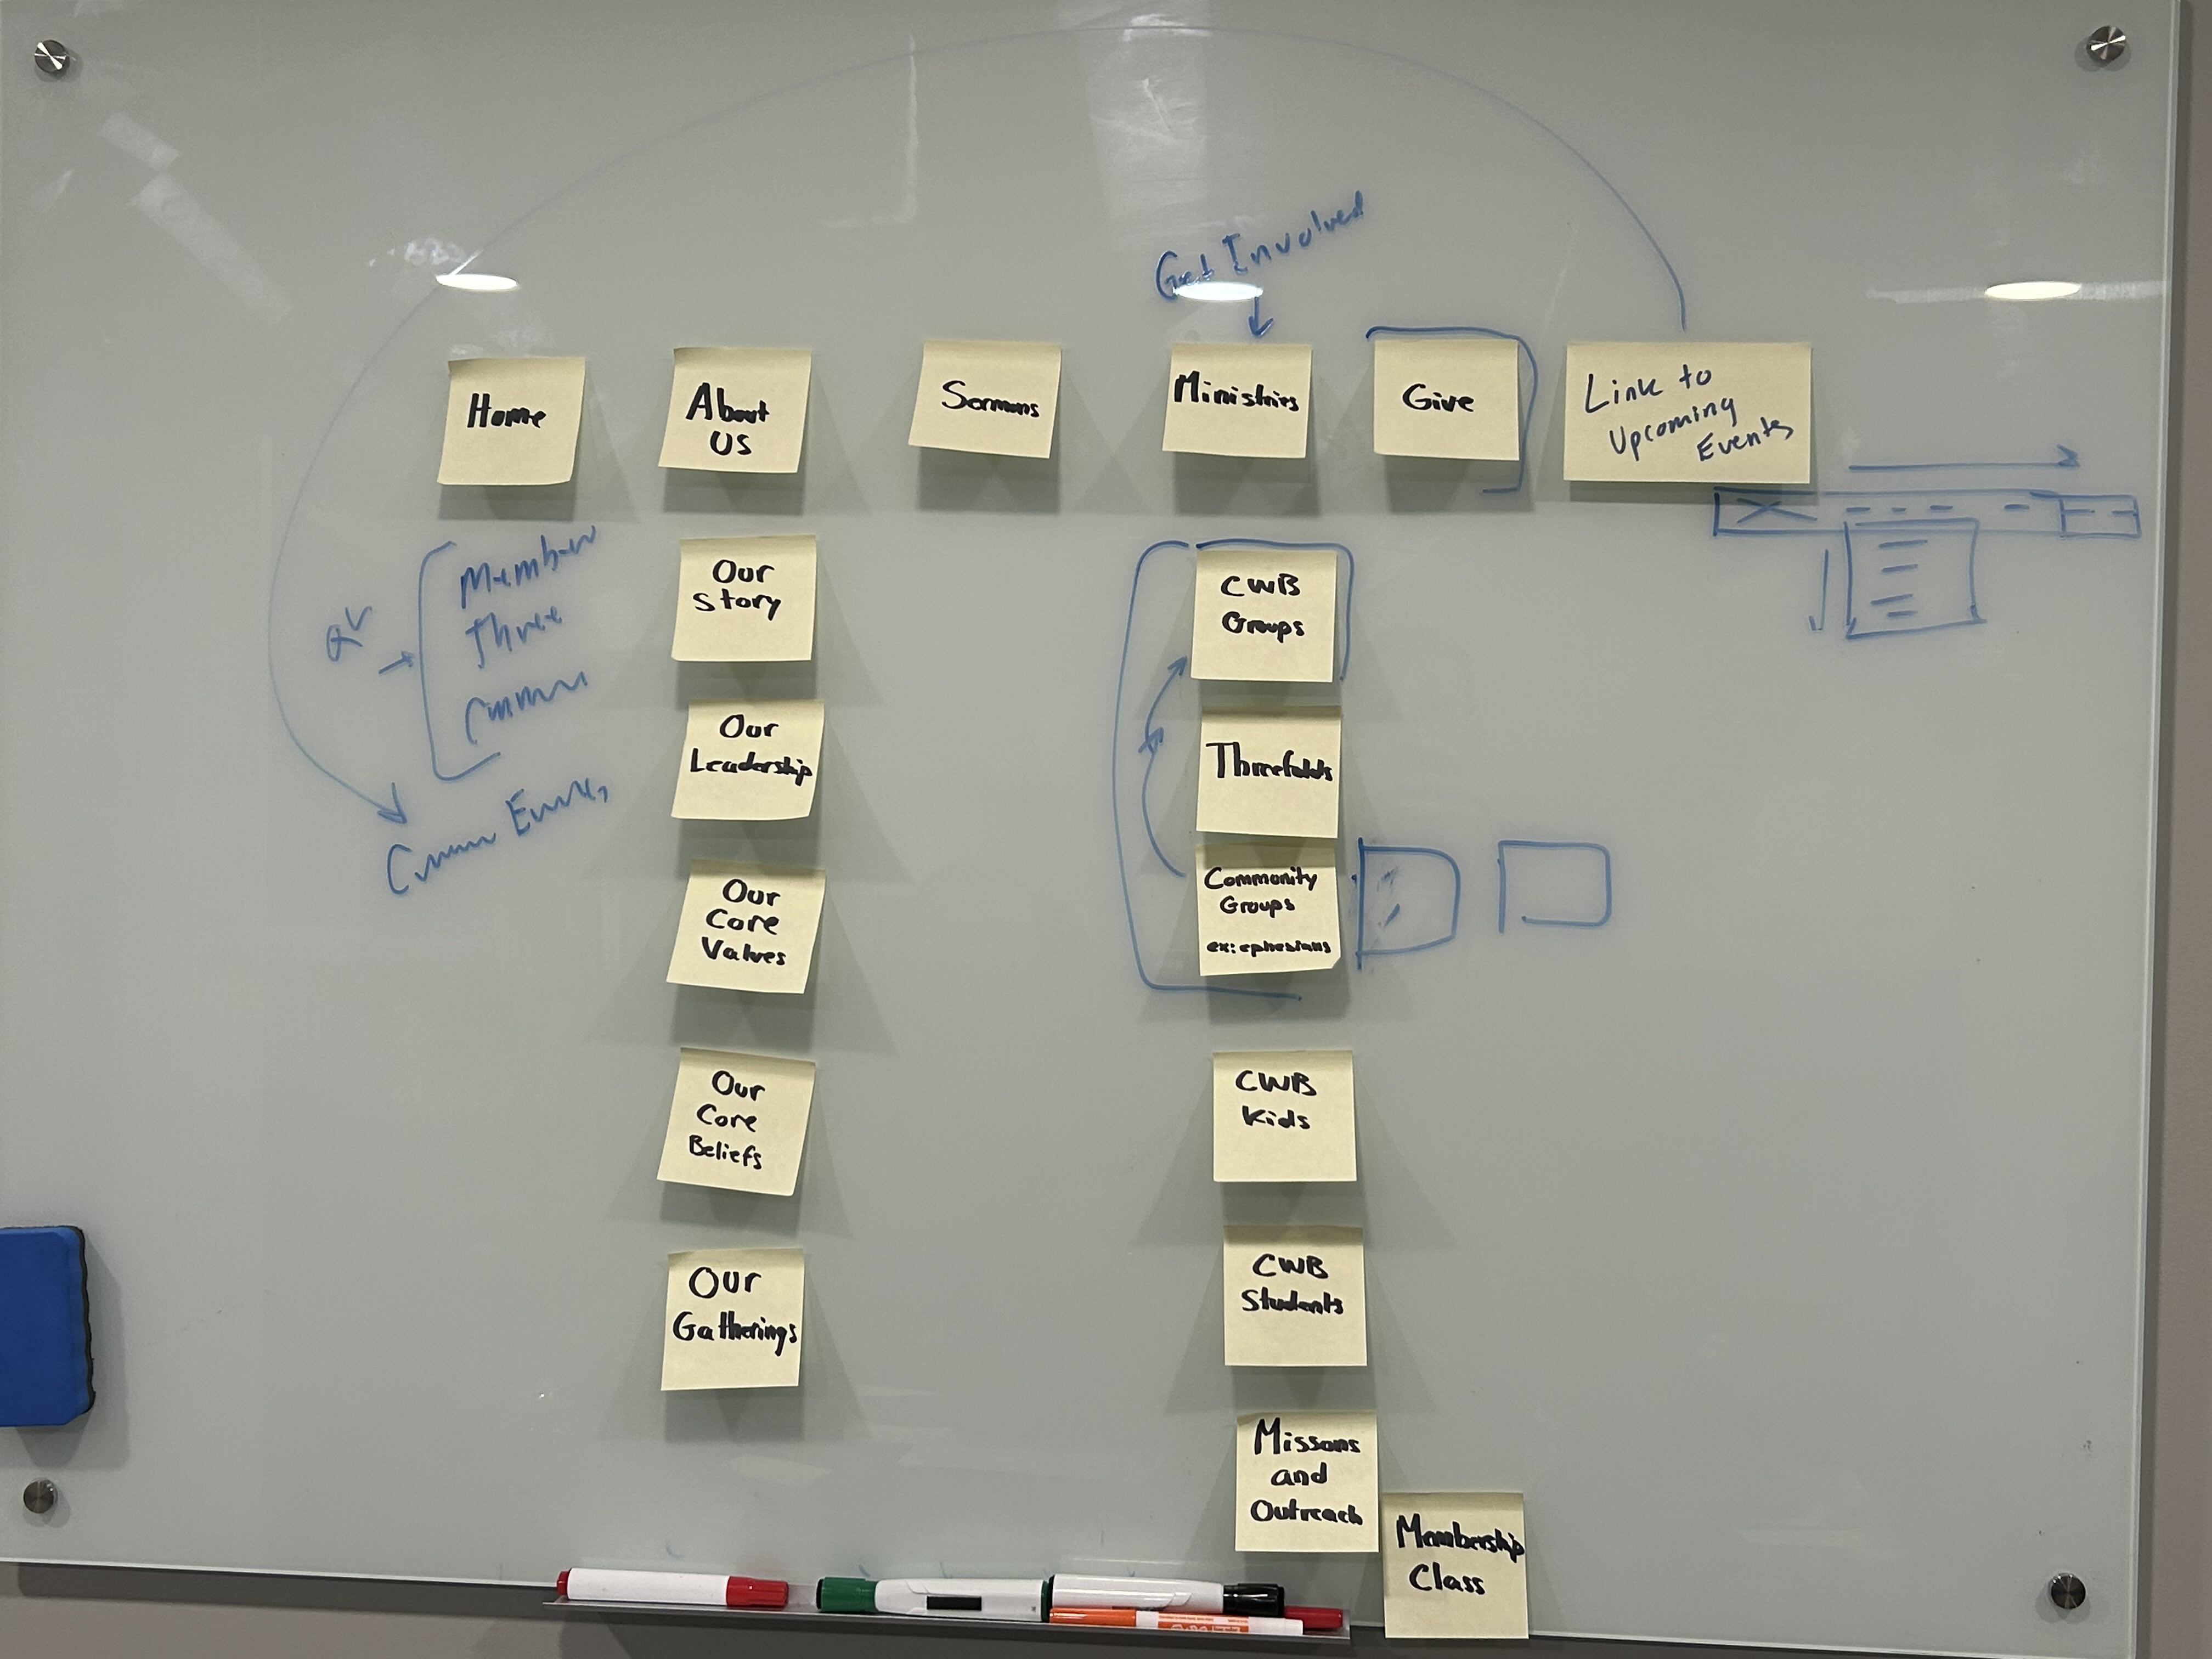 Get Involved
Home
About
US
Sermons
Ministries
Give
Link to
Upcoming
Events
Member
Three
Our
Story
Our
Leadership
Our
Core
Values
Our
Core
Beliefs
Our
Gatherings
CWB
Groups
Threefolds
Community
Groups
ex: ephesians
CWB
Kids
CWB
Students
Missons
and
Outreach
Membership
Class